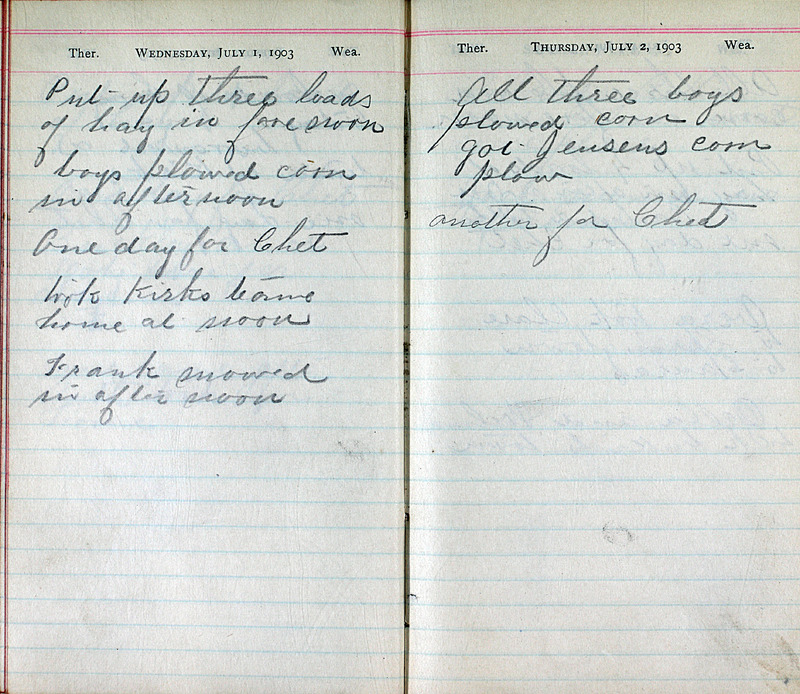 Ther. WEDNESDAY, JULY 1, 1903 Wea.
Put up three loads
of hay in fore noon
boys plowed corn
in after noon
One day for Chet
took Kirks team
home at noon
Frank mowed
in after noon
Ther. THURSDAY, JULY 2, 1903 Wea.
All three boys
plowed corn
got Jensens corn
plow
another for Chet